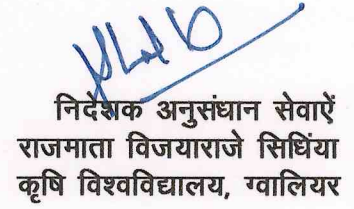 निदेशक अनुसंधान सेवाऐं
राजमाता विजयाराजे सिधिंया
कृषि विश्वविद्यालय, ग्वालियर